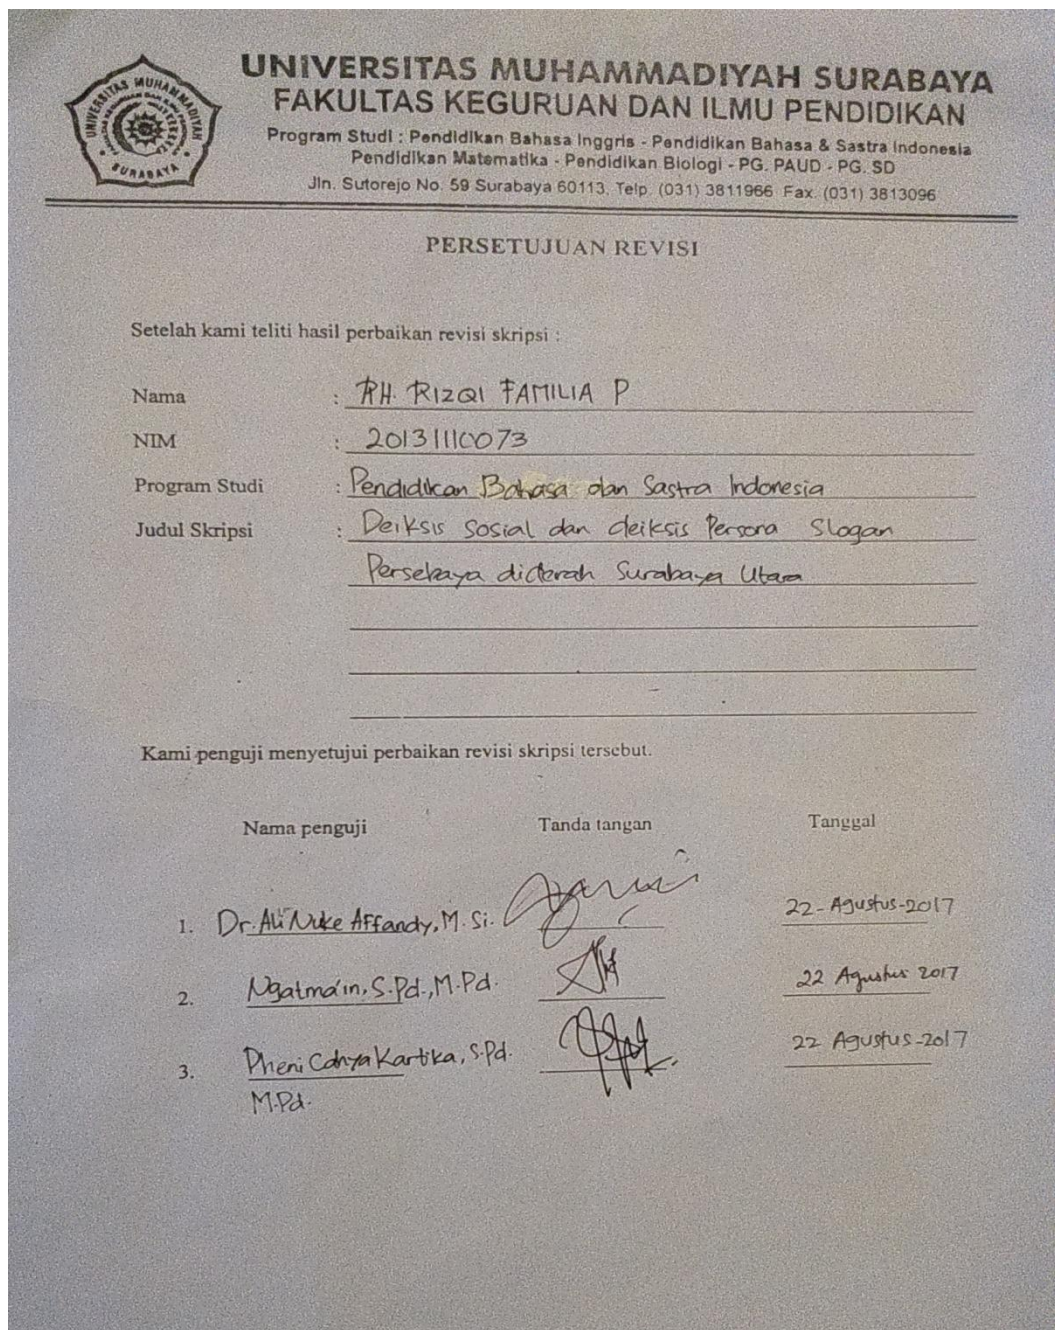 UNIVERSITAS MUHAMMADIYAH SURABAYA
FAKULTAS KEGURUAN DAN ILMU PENDIDIKAN
Program Studi : Pendidikan Bahasa Inggris - Pendidikan Bahasa & Sastra Indonesia
Pendidikan Matematika - Pendidikan Biologi - PG. PAUD - PG. SD
Jln. Sutorejo No. 59 Surabaya 60113, Telp. (031) 3811966 Fax. (031) 3813096
UNIVERSITAS MUHAMMADIYAH
SURABAYA
PERSETUJUAN REVISI
Setelah kami teliti hasil perbaikan revisi skripsi :
Nama : RH. RIZQI FAMILIA P
NIM : 20131110073
Program Studi : Pendidikan Bahasa dan Sastra Indonesia
Judul Skripsi : Deiksis Sosial dan deiksis Persona Slogan
Persebaya didaerah Surabaya Utara
Kami penguji menyetujui perbaikan revisi skripsi tersebut.
Nama penguji Tanda tangan Tanggal
1. Dr. Ali Nuke Affandy, M. Si. 22-Agustus-2017
2. Ngatma'in, S.Pd., M.Pd. 22 Agustus 2017
3. Pheni Cahya Kartika, S.Pd. 22 Agustus-2017
M.Pd.